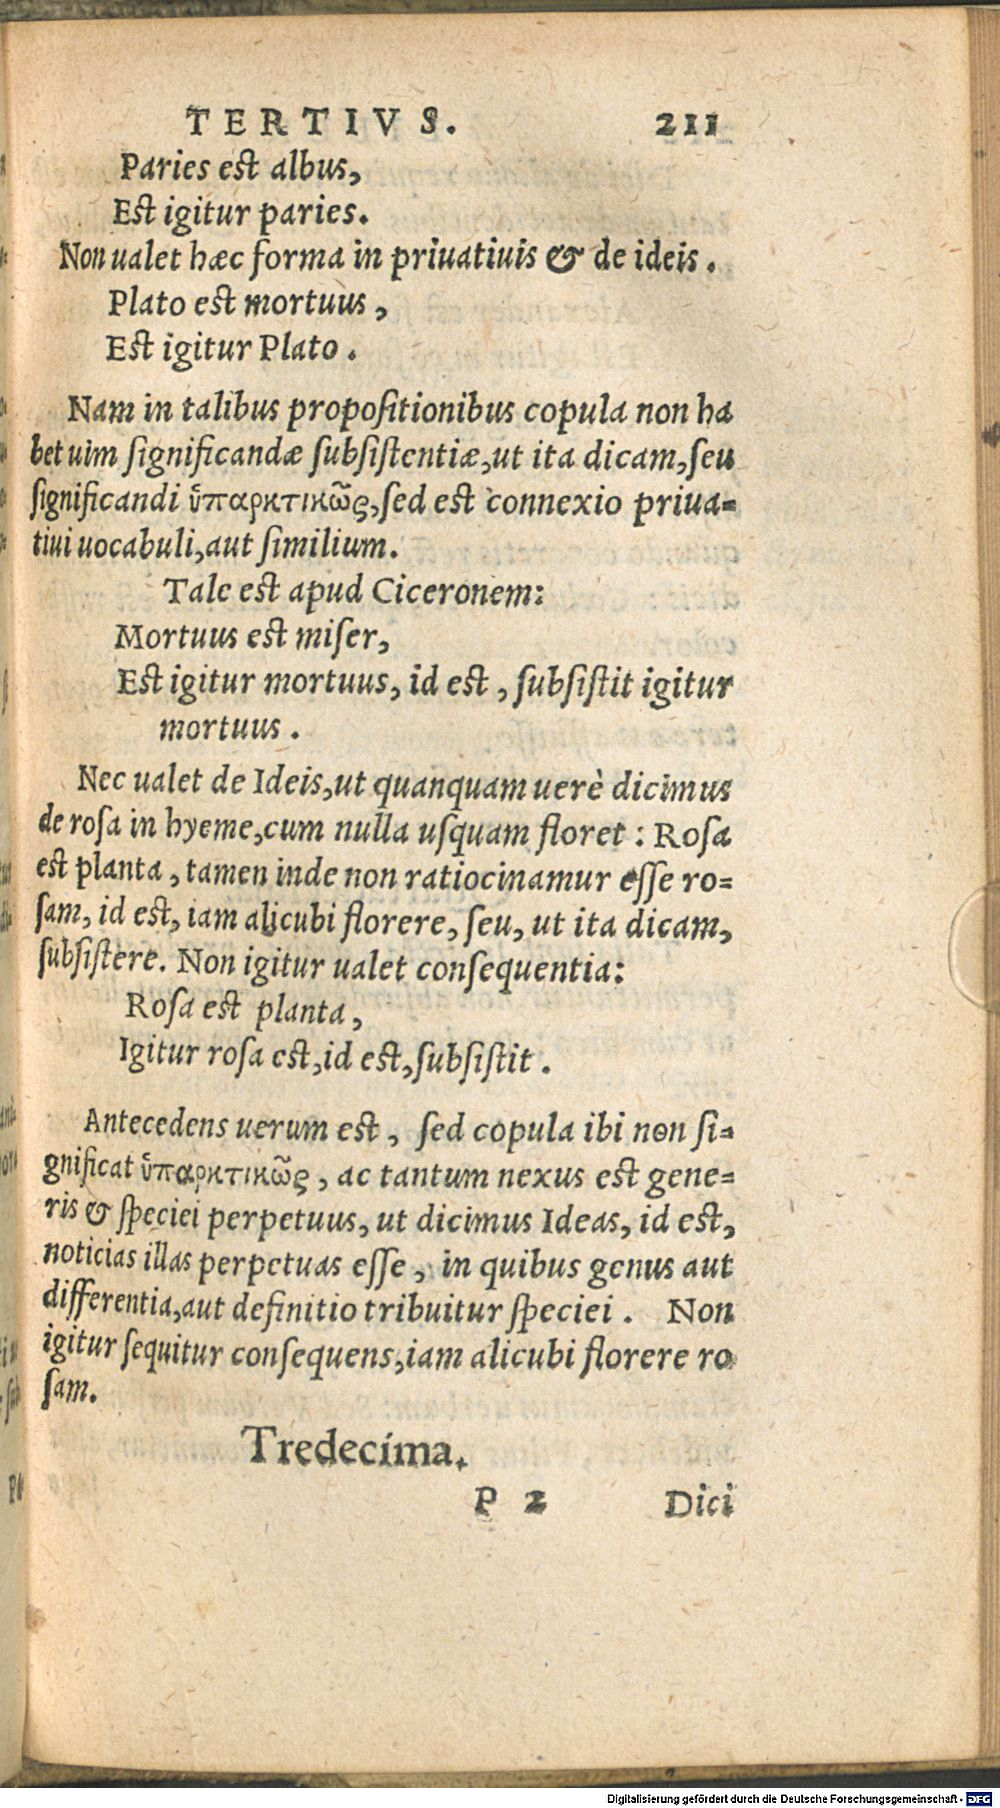 TERTIVS. 211
Paries est albus,
Est igitur paries.
Non ualet hæc forma in priuatiuis & de ideis.
Plato est mortuus,
Est igitur Plato.
Nam in talibus propositionibus copula non ha
bet uim significandæ subsistentiæ, ut ita dicam, seu
significandi ὑπαρκτικῶς, sed est connexio priua=
tiui uocabuli, aut similium.
Tale est apud Ciceronem:
Mortuus est miser,
Est igitur mortuus, id est, subsistit igitur
mortuus.
Nec ualet de Ideis, ut quanquam uerè dicimus
de rosa in hyeme, cum nulla usquam floret: Rosa
est planta, tamen inde non ratiocinamur esse ro=
sam, id est, iam alicubi florere, seu, ut ita dicam,
subsistere. Non igitur ualet consequentia:
Rosa est planta,
Igitur rosa est, id est, subsistit.
Antecedens uerum est, sed copula ibi non si=
gnificat ὑπαρκτικῶς, ac tantum nexus est gene=
ris & speciei perpetuus, ut dicimus Ideas, id est,
noticias illas perpetuas esse, in quibus genus aut
differentia, aut definitio tribuitur speciei. Non
igitur sequitur consequens, iam alicubi florere ro
sam.
Tredecima.
P 2 Dici
Digitalisierung gefördert durch die Deutsche Forschungsgemeinschaft - DFG